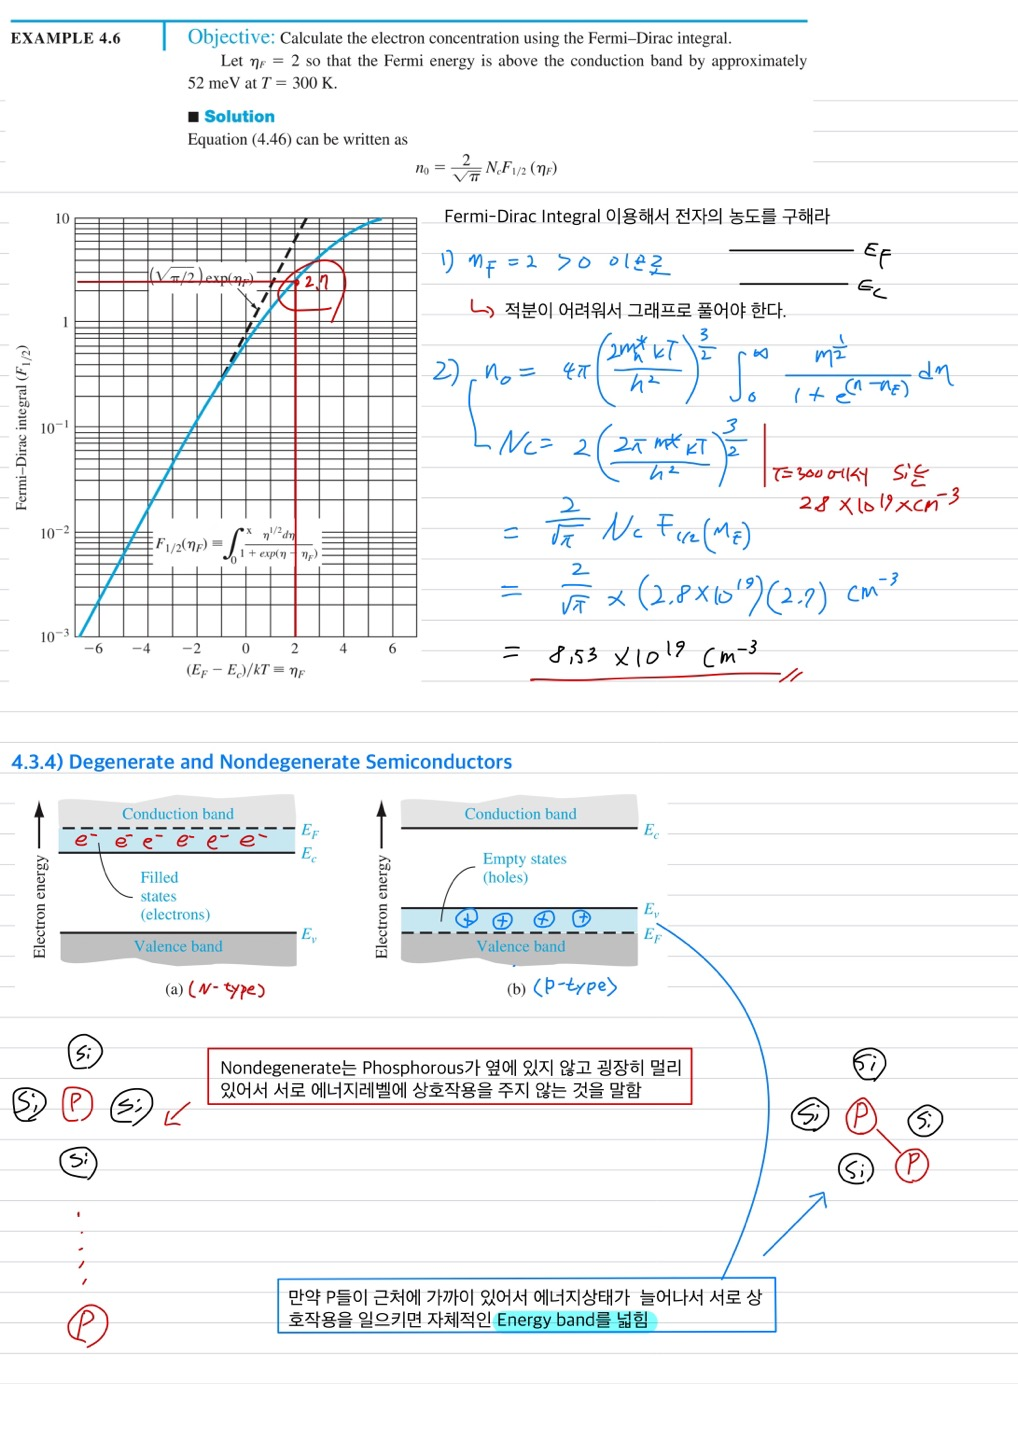 EXAMPLE 4.6
Objective: Calculate the electron concentration using the Fermi–Dirac integral.
Let ηF = 2 so that the Fermi energy is above the conduction band by approximately
52 meV at T = 300 K.
■ Solution
Equation (4.46) can be written as
n₀ = 2/√π NcF1/2 (ηF)
10
1
10⁻¹
10⁻²
10⁻³
Fermi–Dirac integral (F1/2)
(√π/2) exp(ηF)
2.7
F1/2(ηF) ≡ ∫₀^x η^1/2 dη / 1 + exp(η − ηF)
−6 −4 −2 0 2 4 6
(EF − Ec)/kT ≡ ηF
Fermi-Dirac Integral 이용해서 전자의 농도를 구해라
1) ηF = 2 > 0 이므로
EF
Ec
↳ 적분이 어려워서 그래프로 풀어야 한다.
2) n₀ = 4π (2mn* kT / h²)^3/2 ∫₀^∞ η^1/2 / 1 + e^(η−ηF) dη
Nc = 2 (2π m* kT / h²)^3/2
T=300에서 Si는
2.8 × 10^19 × cm⁻³
= 2/√π Nc F1/2(ηF)
= 2/√π × (2.8×10^19)(2.7) cm⁻³
= 8.53 × 10^19 cm⁻³
4.3.4) Degenerate and Nondegenerate Semiconductors
Electron energy
Conduction band
EF
e⁻ e⁻ e⁻ e⁻ e⁻ e⁻
Ec
Filled
states
(electrons)
Ev
Valence band
(a) (N-type)
Electron energy
Conduction band
Ec
Empty states
(holes)
Ev
+ + + +
EF
Valence band
(b) (P-type)
Si
Si P Si
Si
P
Nondegenerate는 Phosphorous가 옆에 있지 않고 굉장히 멀리
있어서 서로 에너지레벨에 상호작용을 주지 않는 것을 말함
Si
Si P Si
Si P
만약 P들이 근처에 가까이 있어서 에너지상태가 늘어나서 서로 상
호작용을 일으키면 자체적인 Energy band를 넓힘